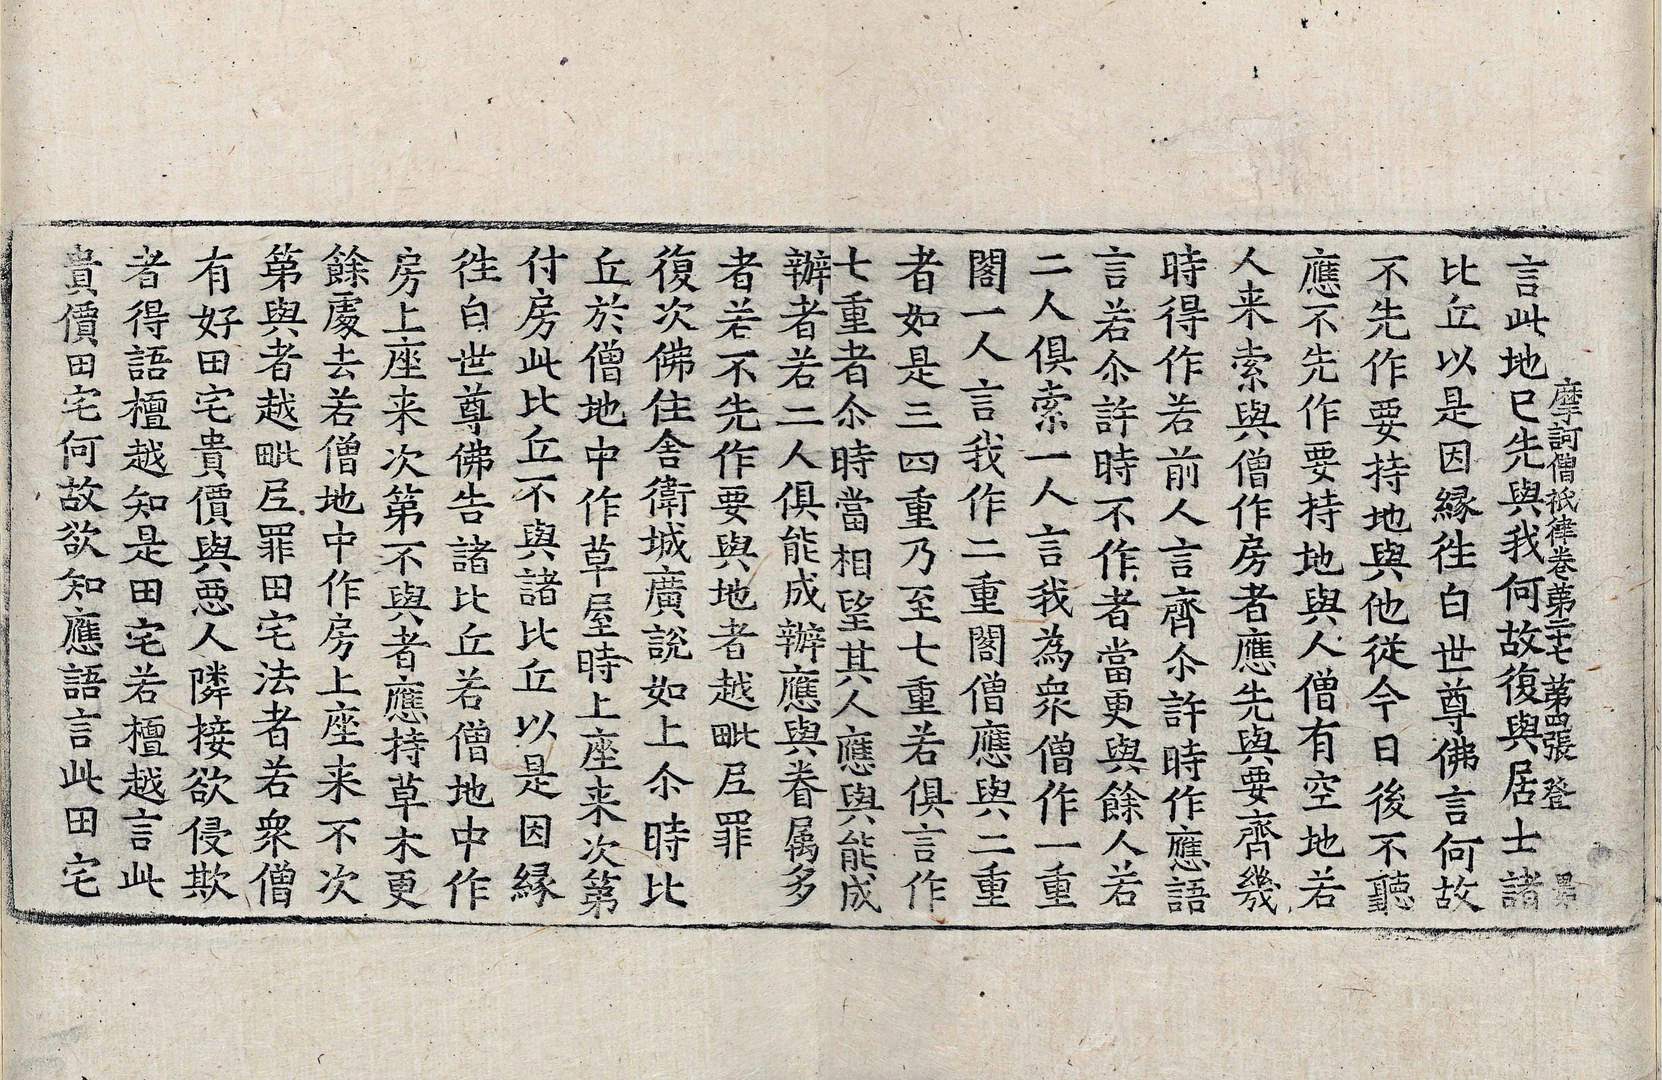 摩訶僧祇律卷第二十七 第四張 登
言此地已先與我何故復與居士諸
比丘以是因緣徃白世尊佛言何故
不先作要持地與他從今日後不聽
應不先作要持地與人僧有空地若
人来索與僧作房者應先與要齊幾
時得作若前人言齊尒許時作應語
言若尒許時不作者當更與餘人若
二人俱索一人言我為衆僧作一重
閣一人言我作二重閣僧應與二重
者如是三四重乃至七重若俱言作
七重者尒時當相望其人應與能成
辦者若二人俱能成辦應與眷属多
者若不先作要與地者越毗尼罪
復次佛住舍衛城廣說如上尒時比
丘於僧地中作草屋時上座来次第
付房此比丘不與諸比丘以是因緣
徃白世尊佛告諸比丘若僧地中作
房上座来次第不與者應持草木更
餘處去若僧地中作房上座来不次
第與者越毗尼罪田宅法者若衆僧
有好田宅貴價與惡人隣接欲侵欺
者得語檀越知是田宅若檀越言此
貴價田宅何故欲知應語言此田宅